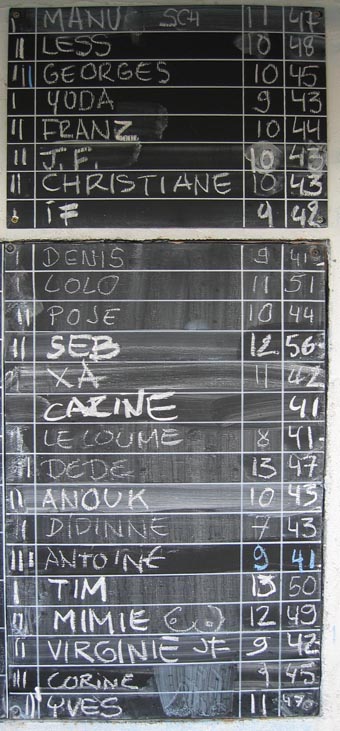 I MANU SCH 11 47
II LESS 10 48
III GEORGES 10 45
I YODA 9 43
II FRANZ 10 44
II J.F. 10 43
II CHRISTIANE 10 43
I IF 9 42
I DENIS 9 41
I COLO 11 51
II POJE 10 44
II SEB 12 56
I XA 11 42
CAZINE 41
I LE LOUME 8 41
II DEDE 13 47
II ANOUK 10 45
II DIDINNE 7 43
III ANTOINE 9 41
I TIM 13 50
II MIMIE 12 49
II VIRGINIE JF 9 42
III CORINE 9 45
III YVES 11 47